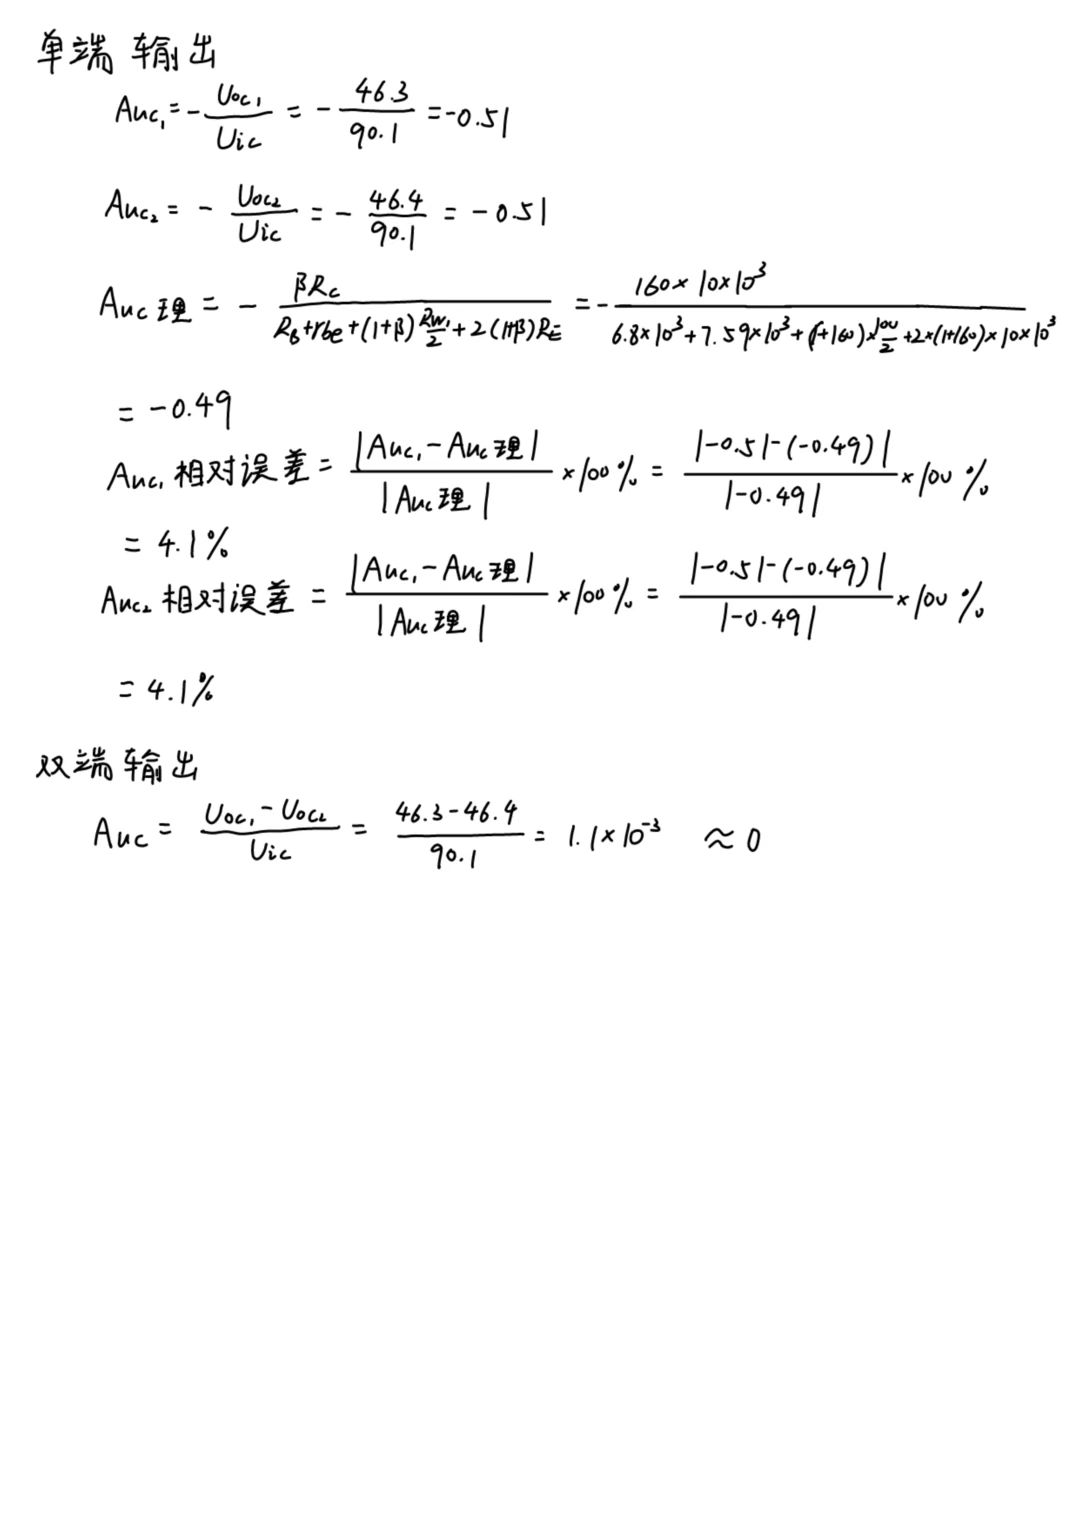 单端输出
Auc₁ = - Uoc₁/Uic = - 46.3/90.1 = -0.51
Auc₂ = - Uoc₂/Uic = - 46.4/90.1 = -0.51
Auc理 = - βRc/(RB+rbe+(1+β)Rw₁/2+2(1+β)RE) = - 160×10×10³/(6.8×10³+7.59×10³+(1+160)×100/2+2×(1+160)×10×10³)
= -0.49
Auc₁相对误差 = |Auc₁-Auc理|/|Auc理| ×100% = |-0.51-(-0.49)|/|-0.49| ×100%
= 4.1%
Auc₂相对误差 = |Auc₁-Auc理|/|Auc理| ×100% = |-0.51-(-0.49)|/|-0.49| ×100%
= 4.1%
双端输出
Auc = (Uoc₁-Uoc₂)/Uic = (46.3-46.4)/90.1 = 1.1×10⁻³ ≈0